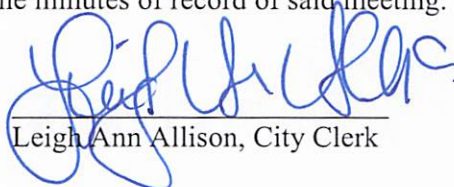 he minutes of record of said meeting.
Leigh Ann Allison, City Clerk